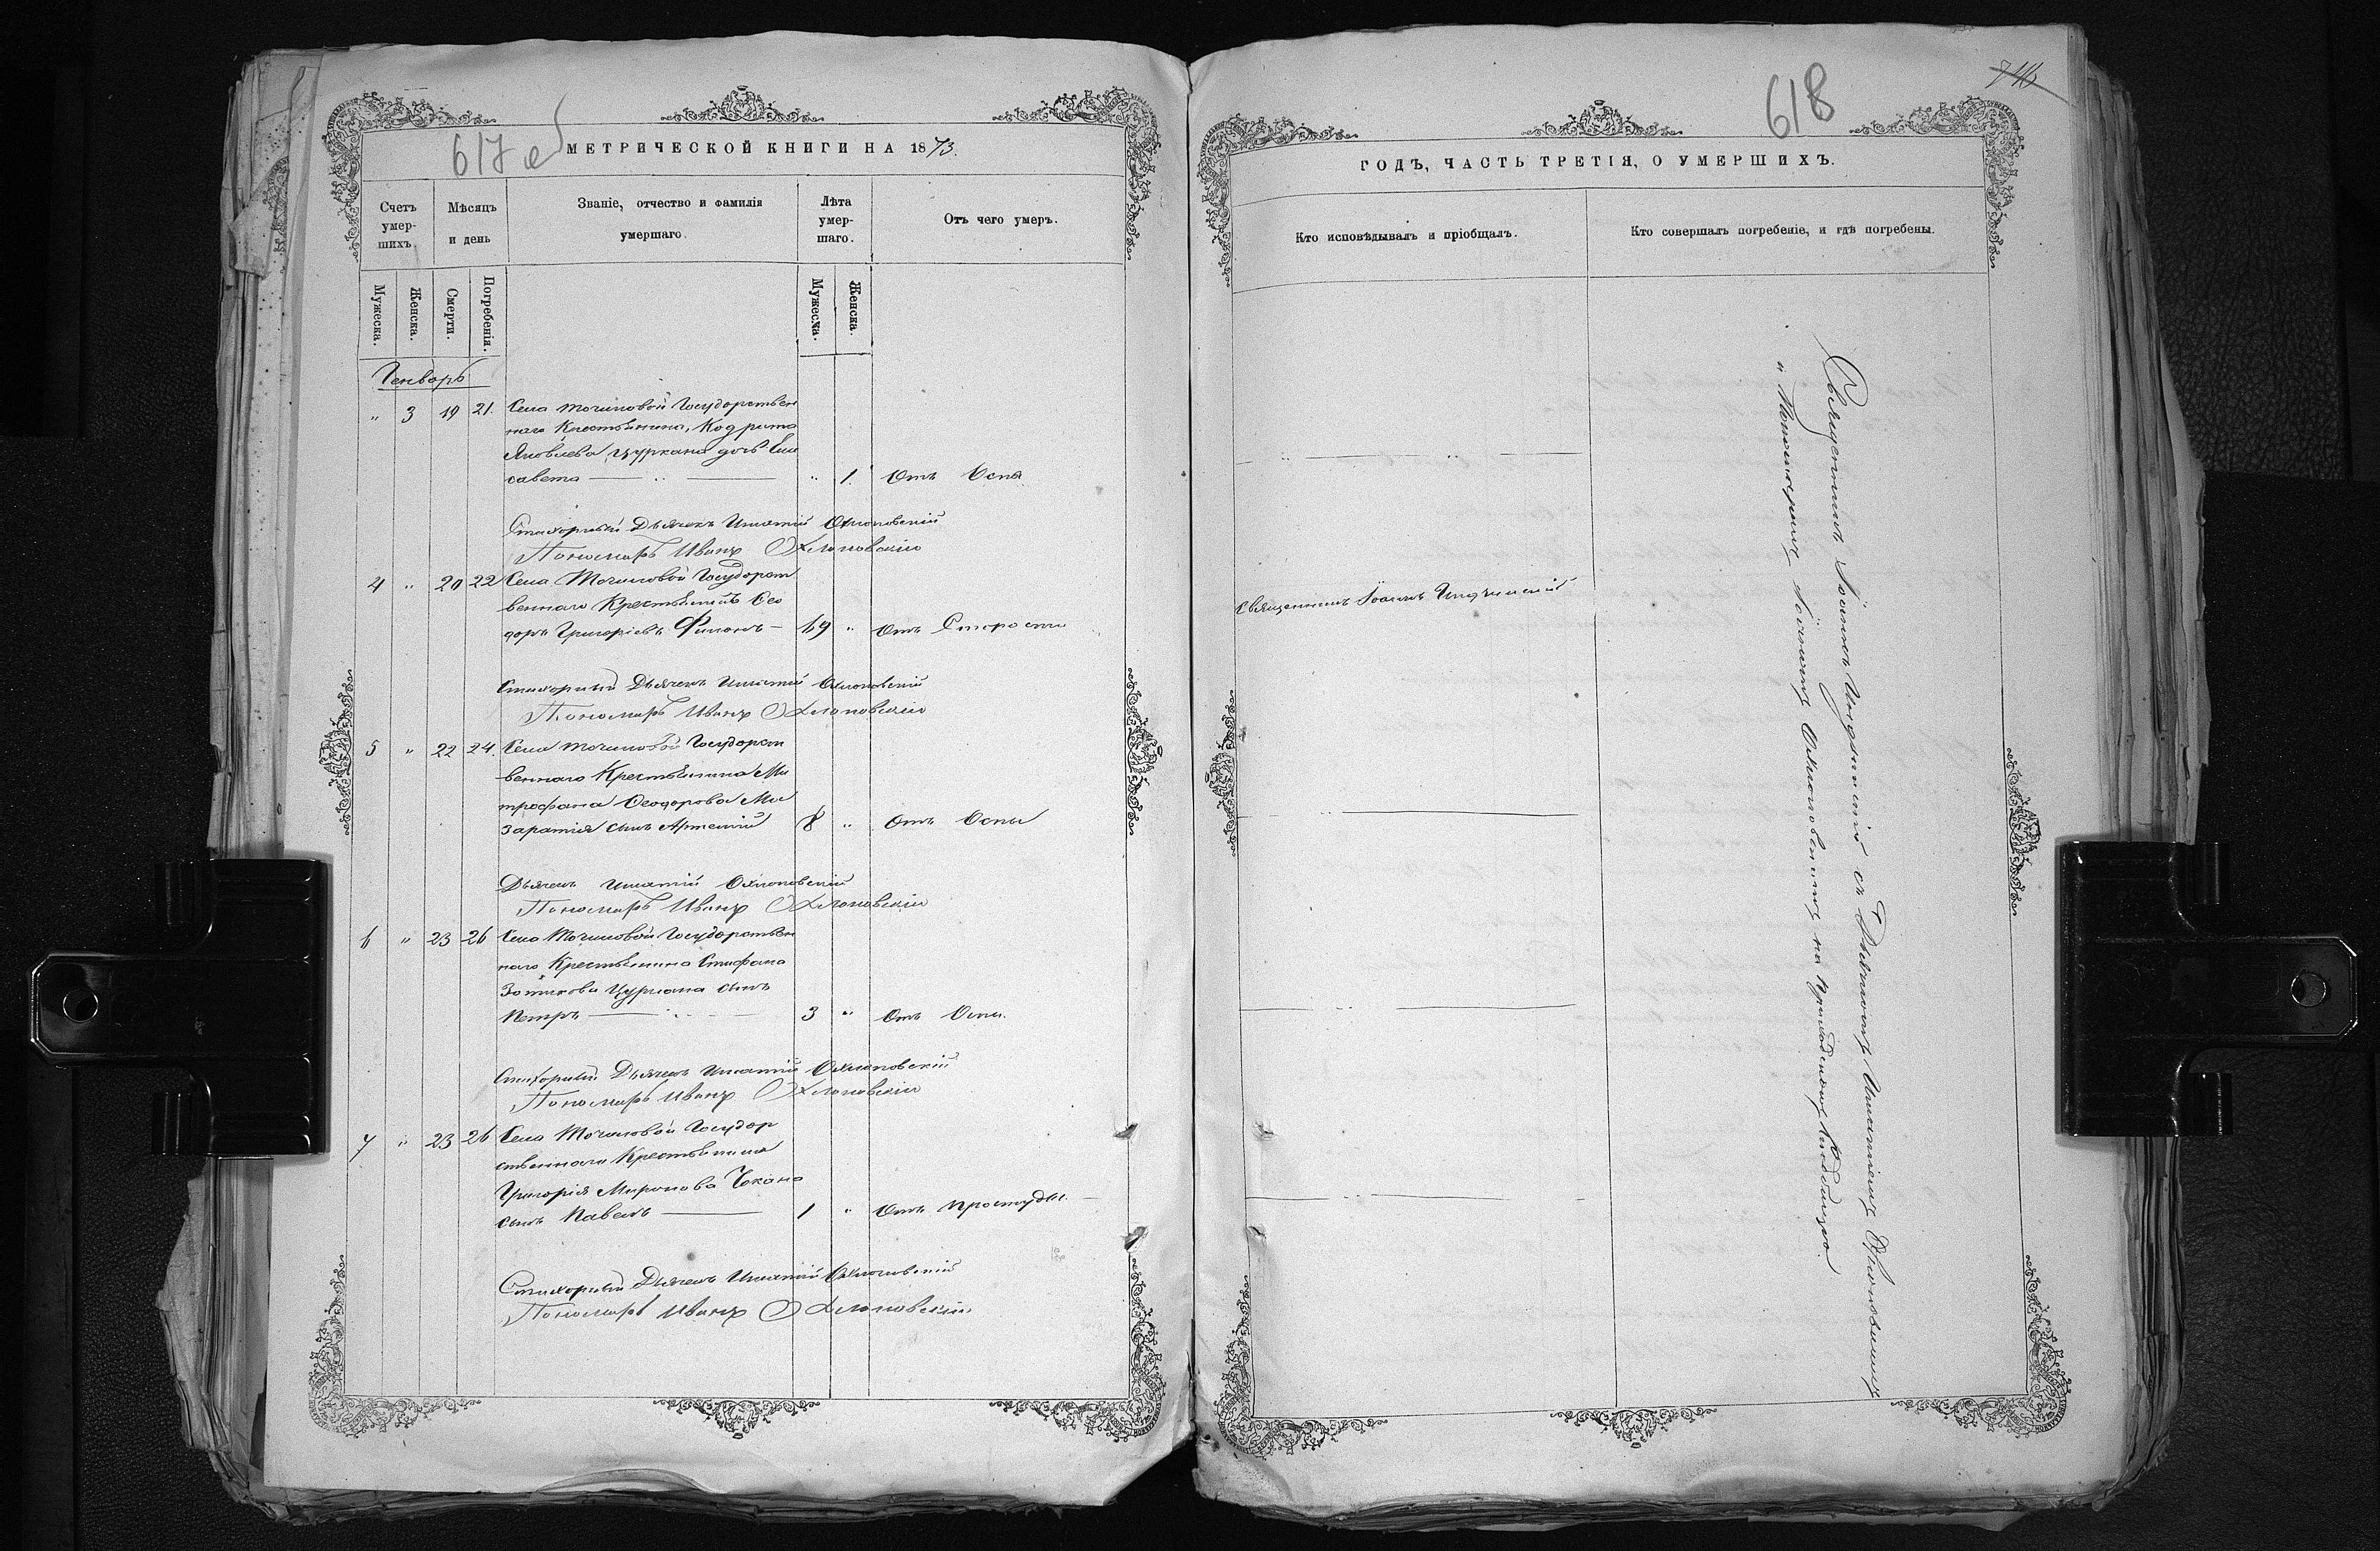 617 об
МЕТРИЧЕСКОЙ КНИГИ НА 1873.
Счетъ умер-шихъ.
Мѣсяцъ и день
Званіе, отчество и фамилія умершаго.
Лѣта умер-шаго.
Отъ чего умеръ.
Мужеска.
Женска.
Смерти.
Погребенія.
Мужеска.
Женска.
Генварь
" 3 19 21. Села Точиловой Государствен
наго Крестьянина, Кодрата
Яковлева Цуркана дочь Ели
савета — " — " 1. Отъ Оспы
Стихарный Дьячекъ Игнатій Охлоповскій
Пономарь Иванъ Охлоповскій
4 " 20 22 Села Точиловой Государст
веннаго Крестьянинъ Ѳео
доръ Григоріевъ — 69 " Отъ Старости
Стихарный Дьячекъ Игнатій Охлоповскій
Пономарь Иванъ Охлоповскій
5 " 22 24. Села Точиловой Государст
веннаго Крестьянина Ми
трофана Ѳеодорова Ми
заратія сынъ Артемій 8 " Отъ Оспы
Дьячекъ Игнатій Охлоповскій
Пономарь Иванъ Охлоповскій
6 " 23 26 Села Точиловой Государствен
наго Крестьянина Стефана
Зотикова Цуркана сынъ
Петръ — 3 " Отъ Оспы.
Стихарный Дьячекъ Игнатій Охлоповскій
Пономарь Иванъ Охлоповскій
7 " 23 26 Села Точиловой Государ
ственнаго Крестьянина
Григорія Миронова Чекана
сынъ Павелъ — 1 " Отъ простуды.
Стихарный Дьячекъ Игнатій Охлоповскій
Пономарь Иванъ Охлоповскій
618
ГОДЪ, ЧАСТЬ ТРЕТІЯ, О УМЕРШИХЪ.
Кто исповѣдывалъ и пріобщалъ.
Кто совершалъ погребеніе, и гдѣ погребены.
Священникъ Іоаннъ
Священникъ Іоаннъ съ Дьячкомъ Игнатіемъ Охлоповскимъ
и Пономаремъ Іоанномъ Охлоповскимъ на приходскомъ кладбищѣ.